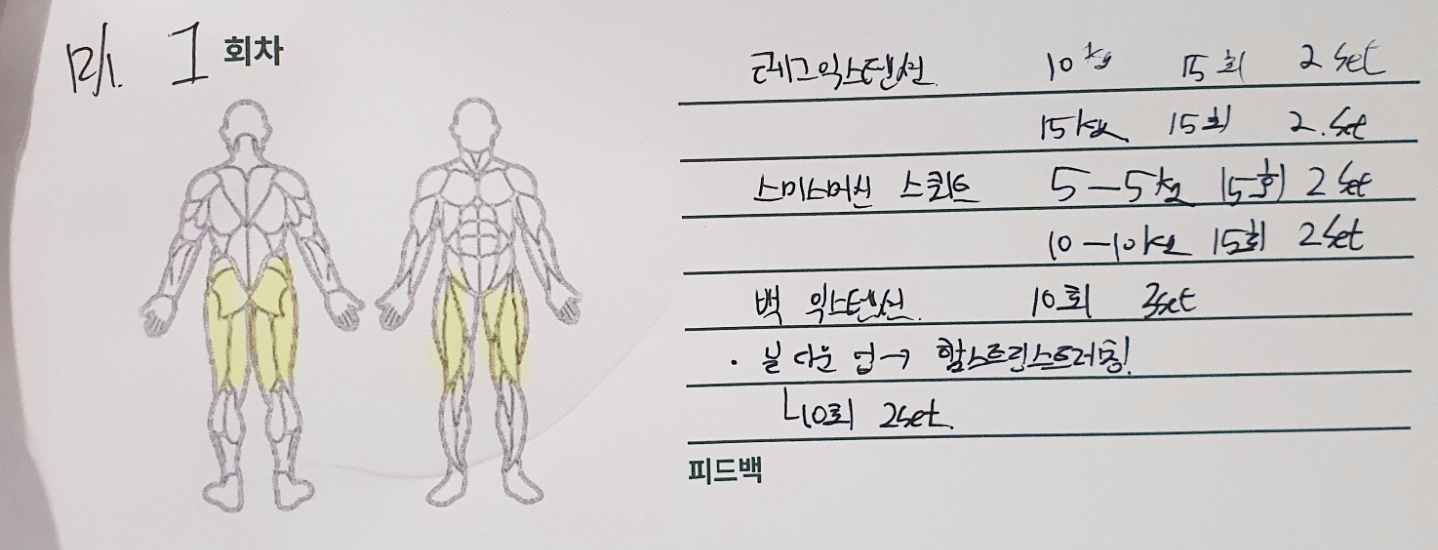 12/1. 1 회차
레그익스텐션 10kg 15회 2 set
15kg 15회 2. set
스미스머신 스쿼트 5-5kg 15회 2 set
10-10kg 15회 2set
백 익스텐션 10회 3set
· 다운 업→ 햄스트링스트레칭!
└10회 2set.
피드백